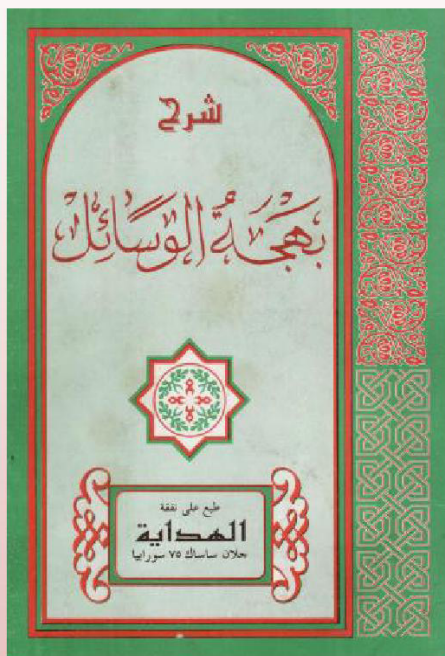 شرح
بَهْجَةُ الْوَسَائِل
طبع على نفقة
الهداية
جلان ساساك ٧٥ سورابيا